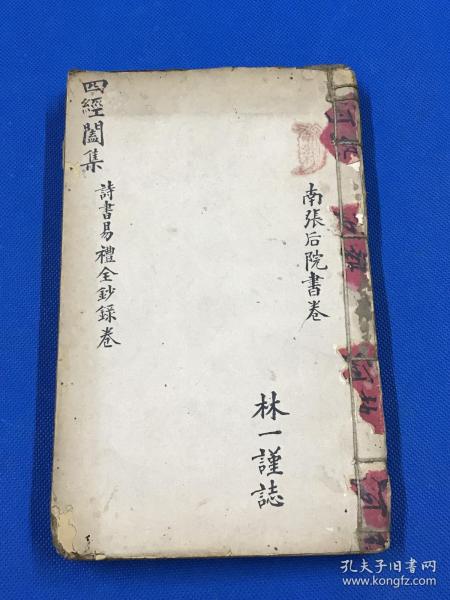 四經闔集
詩書易禮全鈔錄卷
南張后院書巷
林一謹誌
孔夫子旧书网
www.kongfz.com